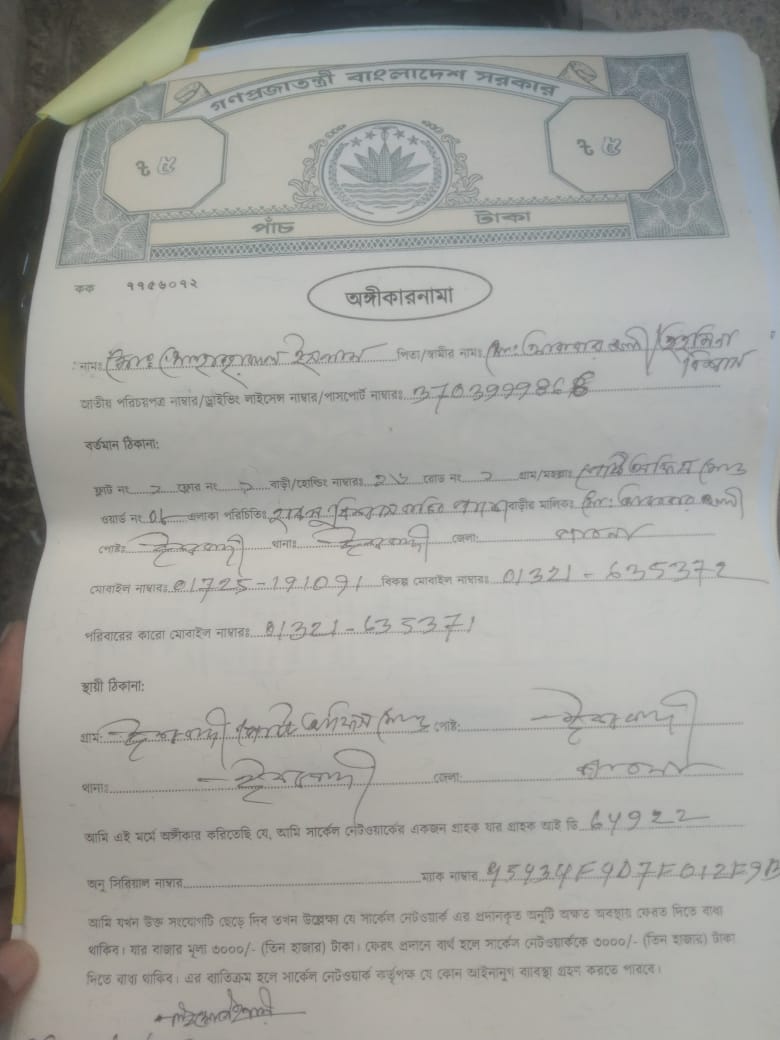 গণপ্রজাতন্ত্রী বাংলাদেশ সরকার
৳ ৫ ৳ ৫
পাঁচ টাকা
কক ৭৭৫৬০৭২
অঙ্গীকারনামা
নামঃ মোঃ ইসলাম পিতা/স্বামীর নামঃ মোঃ আকবার আলী
জাতীয় পরিচয়পত্র নাম্বার/ড্রাইভিং লাইসেন্স নাম্বার/পাসপোর্ট নাম্বারঃ 3703999868
বর্তমান ঠিকানা:
ফ্লাট নং ২ ফ্লোর নং ২ বাড়ী/হোল্ডিং নাম্বারঃ রোড নং ২ গ্রাম/মহল্লাঃ পোষ্ট অফিস মোড়
ওয়ার্ড নং 06 এলাকা পরিচিতিঃ বাড়ীর মালিকঃ মোঃ আকবার আলী
পোষ্টঃ ঈশ্বরদী থানাঃ ঈশ্বরদী জেলাঃ পাবনা
মোবাইল নাম্বারঃ 01725-191091 বিকল্প মোবাইল নাম্বারঃ 01321-635372
পরিবারের কারো মোবাইল নাম্বারঃ 01321-635371
স্থায়ী ঠিকানা:
গ্রামঃ ঈশ্বরদী পোষ্ট অফিস মোড় পোষ্টঃ ঈশ্বরদী
থানাঃ ঈশ্বরদী জেলাঃ পাবনা
আমি এই মর্মে অঙ্গীকার করিতেছি যে, আমি সার্কেল নেটওয়ার্কের একজন গ্রাহক যার গ্রাহক আই ডি 64922
অনু সিরিয়াল নাম্বার ম্যাক নাম্বার 45434F9D7F012F9B
আমি যখন উক্ত সংযোগটি ছেড়ে দিব তখন উল্লেখ্য যে সার্কেল নেটওয়ার্ক এর প্রদানকৃত অনুটি অক্ষত অবস্থায় ফেরত দিতে বাধ্য
থাকিব। যার বাজার মূল্য ৩০০০/- (তিন হাজার) টাকা। ফেরৎ প্রদানে ব্যর্থ হলে সার্কেল নেটওয়ার্ককে ৩০০০/- (তিন হাজার) টাকা
দিতে বাধ্য থাকিব। এর ব্যতিক্রম হলে সার্কেল নেটওয়ার্ক কর্তৃপক্ষ যে কোন আইনানুগ ব্যবস্থা গ্রহণ করতে পারবে।